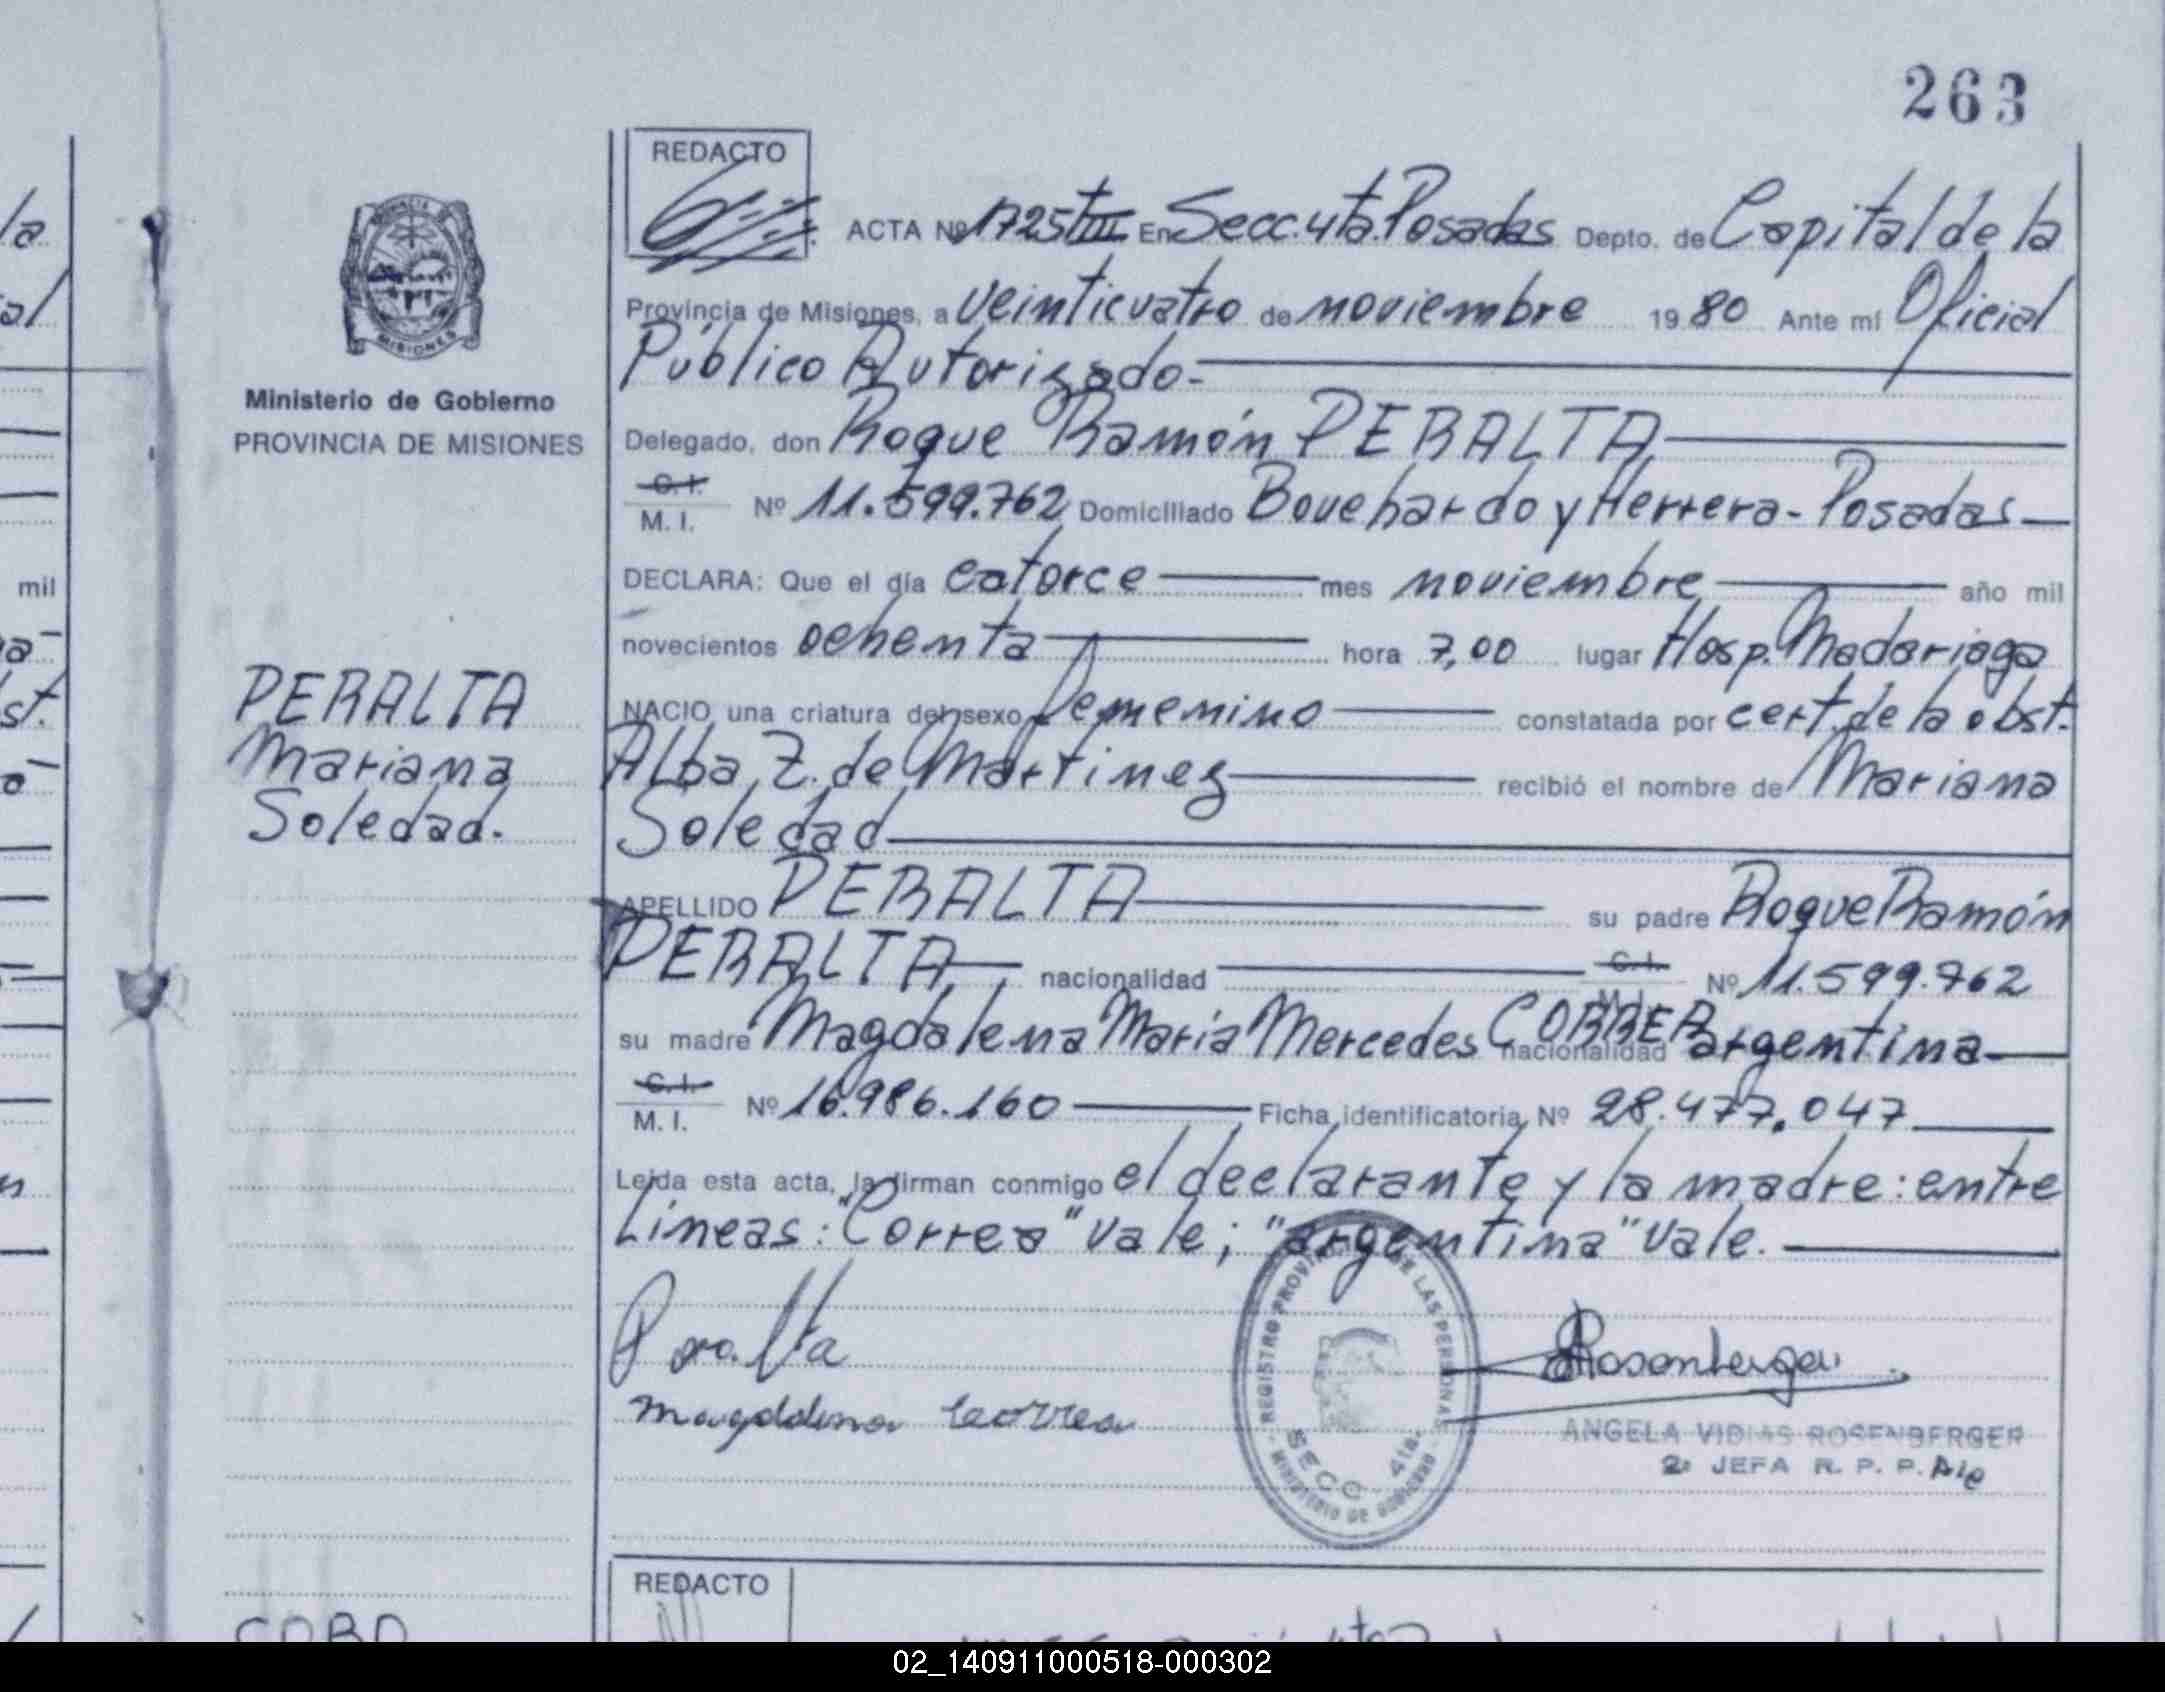 263
REDACTO
ACTA Nº 1725 tIII En Secc. 4ta. Posadas Depto. de Capital de la
Provincia de Misiones, a veinticuatro de noviembre 1980 Ante mí Oficial
Público Autorizado.-
Delegado, don Roque Ramón PERALTA
C. I.
M. I. Nº 11.599.762 Domiciliado Bouchardo y Herrera - Posadas
DECLARA: Que el día catorce mes noviembre año mil
novecientos ochenta hora 7,00 lugar Hosp. Madariaga
NACIO una criatura del sexo femenino constatada por cert. de la obst.
Alba Z. de Martinez recibió el nombre de Mariana
Soledad
APELLIDO PERALTA su padre Roque Ramón
PERALTA nacionalidad C. I. M. I. Nº 11.599.762
su madre Magdalena María Mercedes CORREA nacionalidad argentina
C. I.
M. I. Nº 16.986.160 Ficha identificatoria Nº 28.477.047
Leída esta acta, la firman conmigo el declarante y la madre: entre
Líneas: "Correa" vale; "argentina" vale.
Peralta
Magdalena Correa
Rosenberger
ANGELA VIDIAS ROSENBERGER
2ª JEFA R. P. P.
REGISTRO PROVINCIAL DE LAS PERSONAS
SECC. 4ta.
MINISTERIO DE GOBIERNO
PROVINCIA DE
MISIONES
Ministerio de Gobierno
PROVINCIA DE MISIONES
PERALTA
Mariana
Soledad.
la
al
mil
st.
REDACTO
02_140911000518-000302